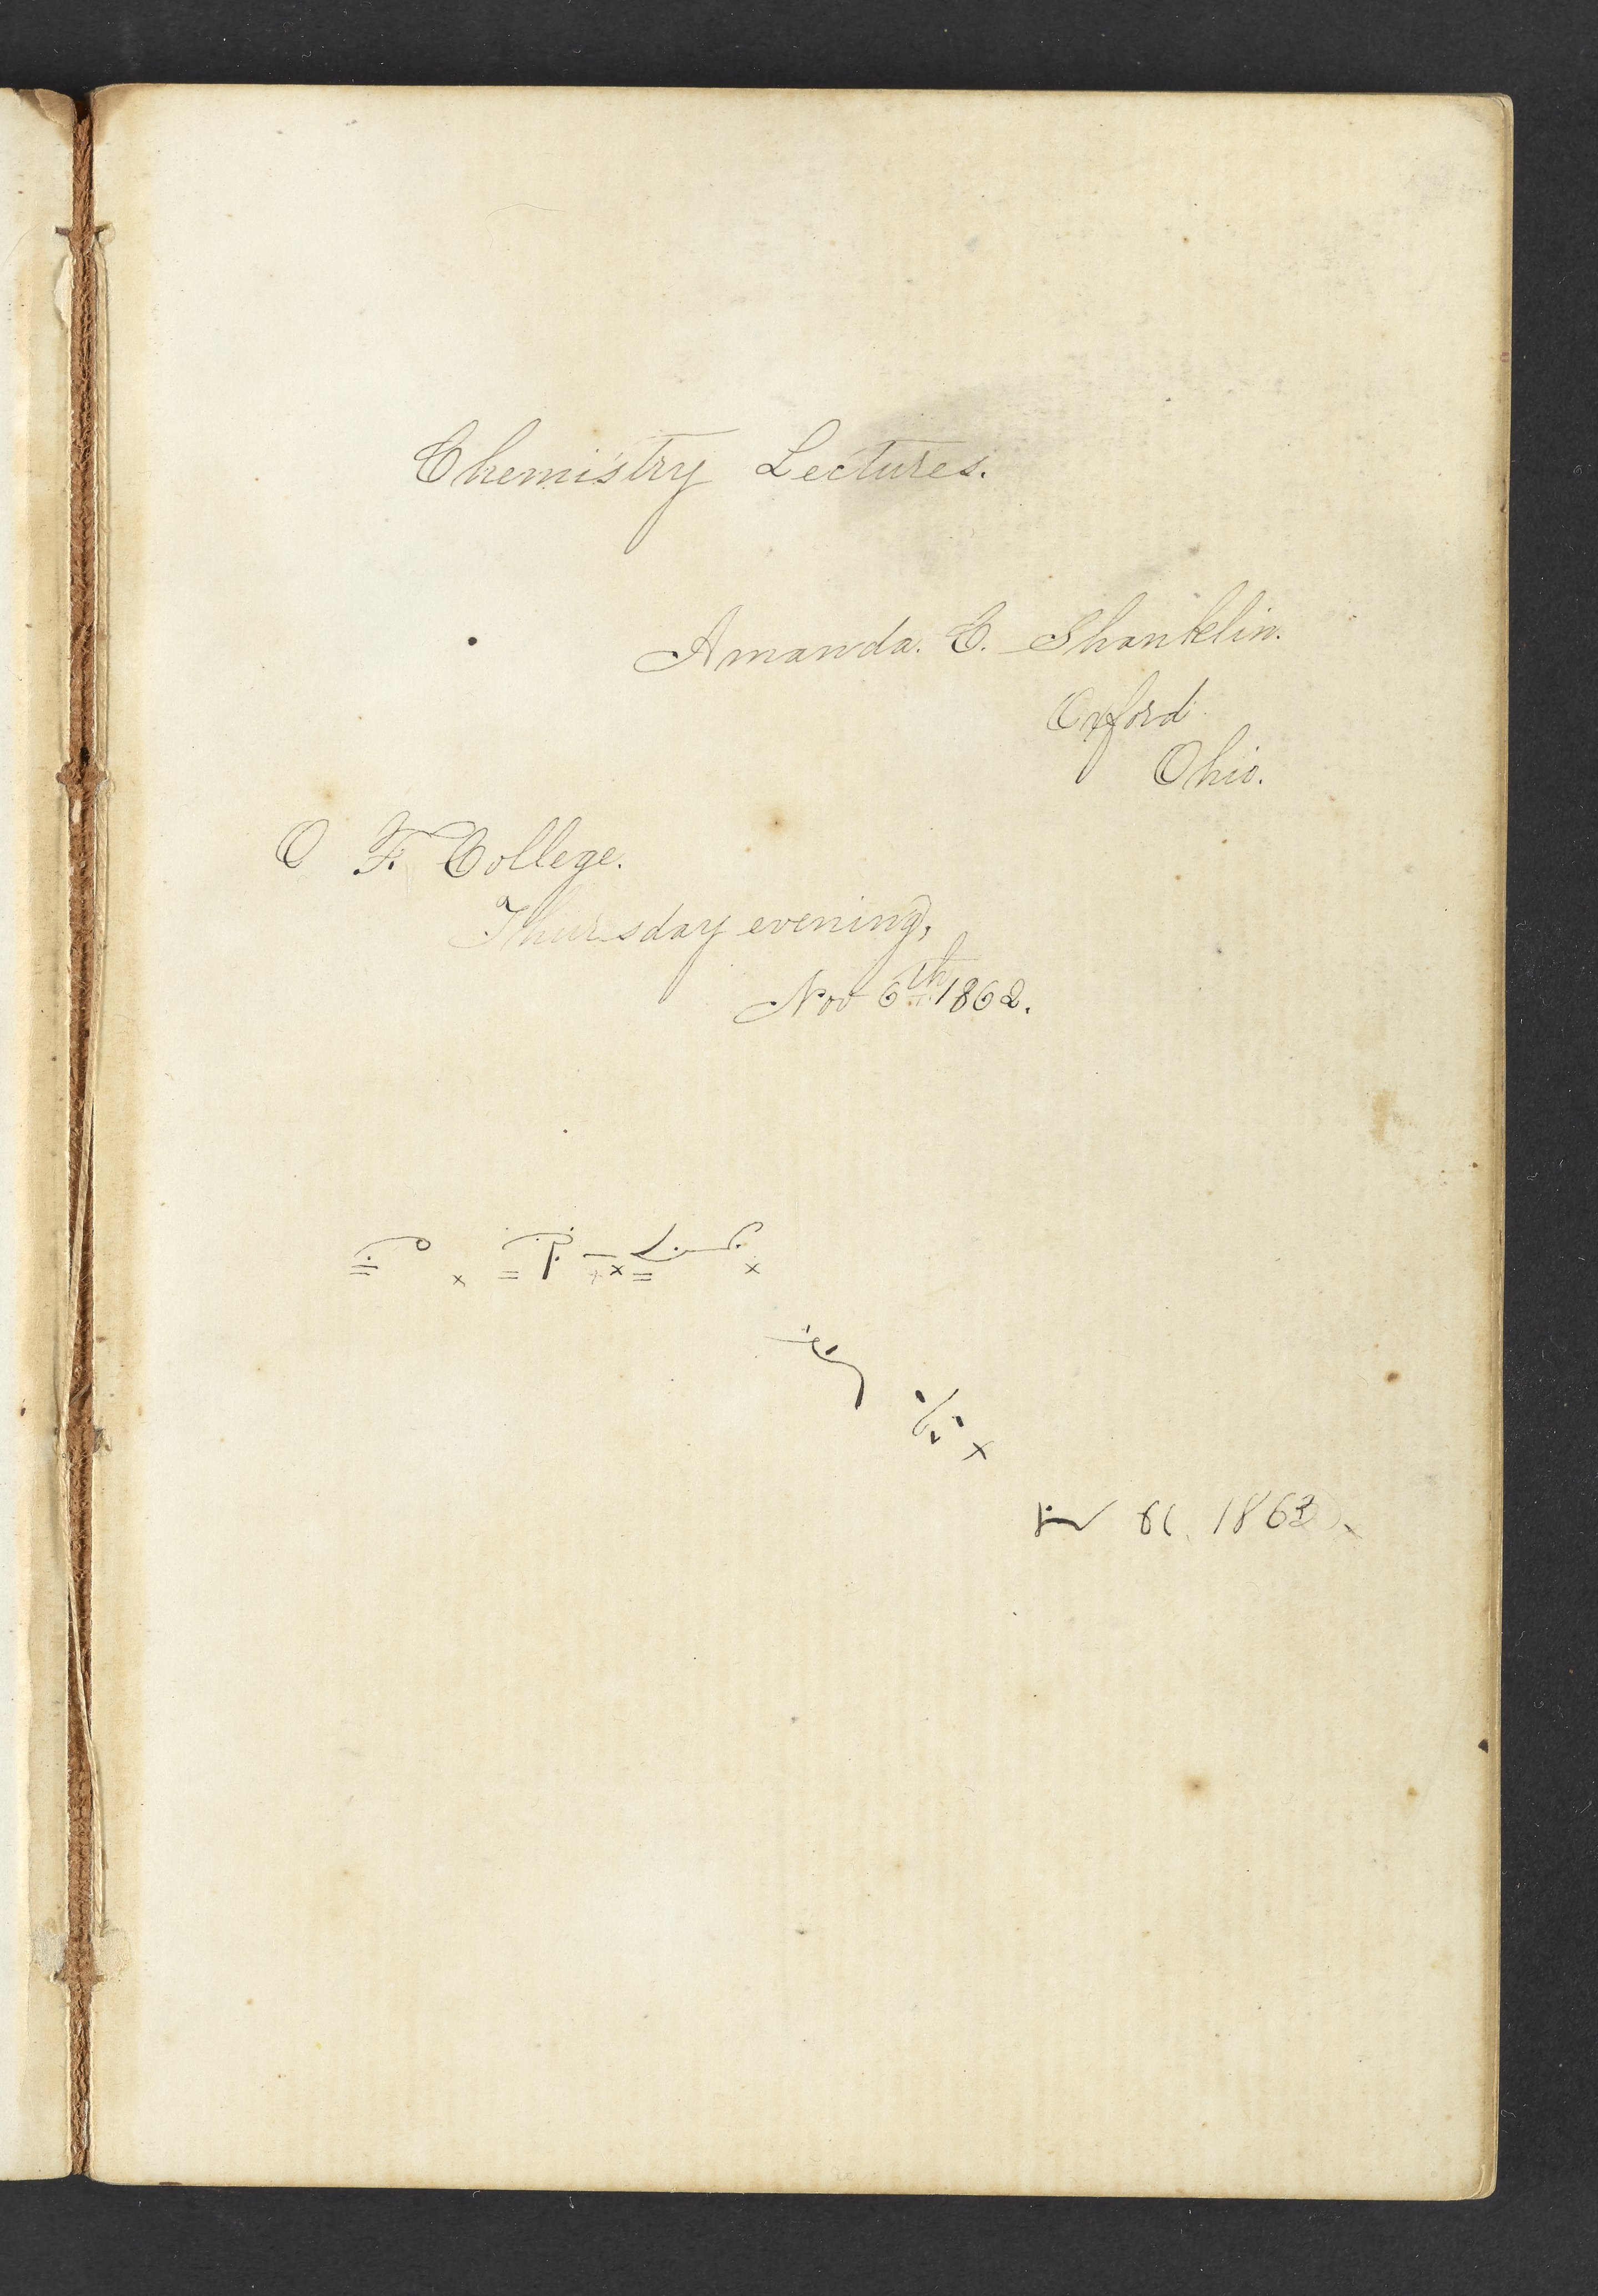 Chemistry Lectures.
Amanda. C. Shanklin.
Oxford
Ohio.
O F. College.
Thursday evening,
Nov 6th 1862.
1863